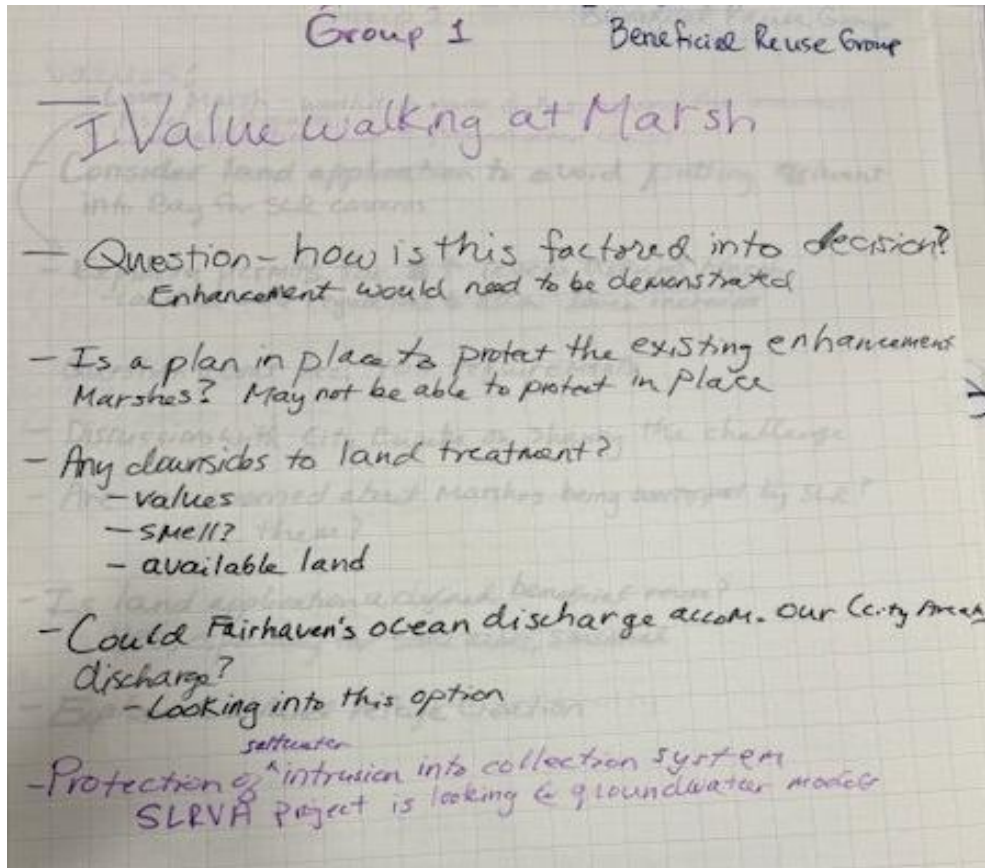 Group 1 Beneficial Reuse Group
— I Value walking at Marsh
— Question - how is this factored into decision?
Enhancement would need to be demonstrated
- Is a plan in place to protect the existing enhancement
Marshes? May not be able to protect in place
- Any downsides to land treatment?
- values
- smell?
- available land
- Could Fairhaven's ocean discharge accom. our (City Arcata)
discharge?
- Looking into this option
saltwater
- Protection of ^ intrusion into collection system
SLRVA project is looking @ groundwater models